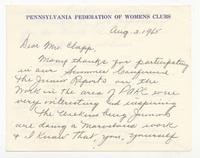 PENNSYLVANIA FEDERATION OF WOMENS CLUBS
Aug. 3, 1965
Dear Mrs. Clapp,
Many thanks for participating
in our Summer Conference.
The Junior Reports on the
Work in the area of PARC were
very interesting and inspiring.
The Juniors
are doing a Marvelous work
& I know that you, yourself